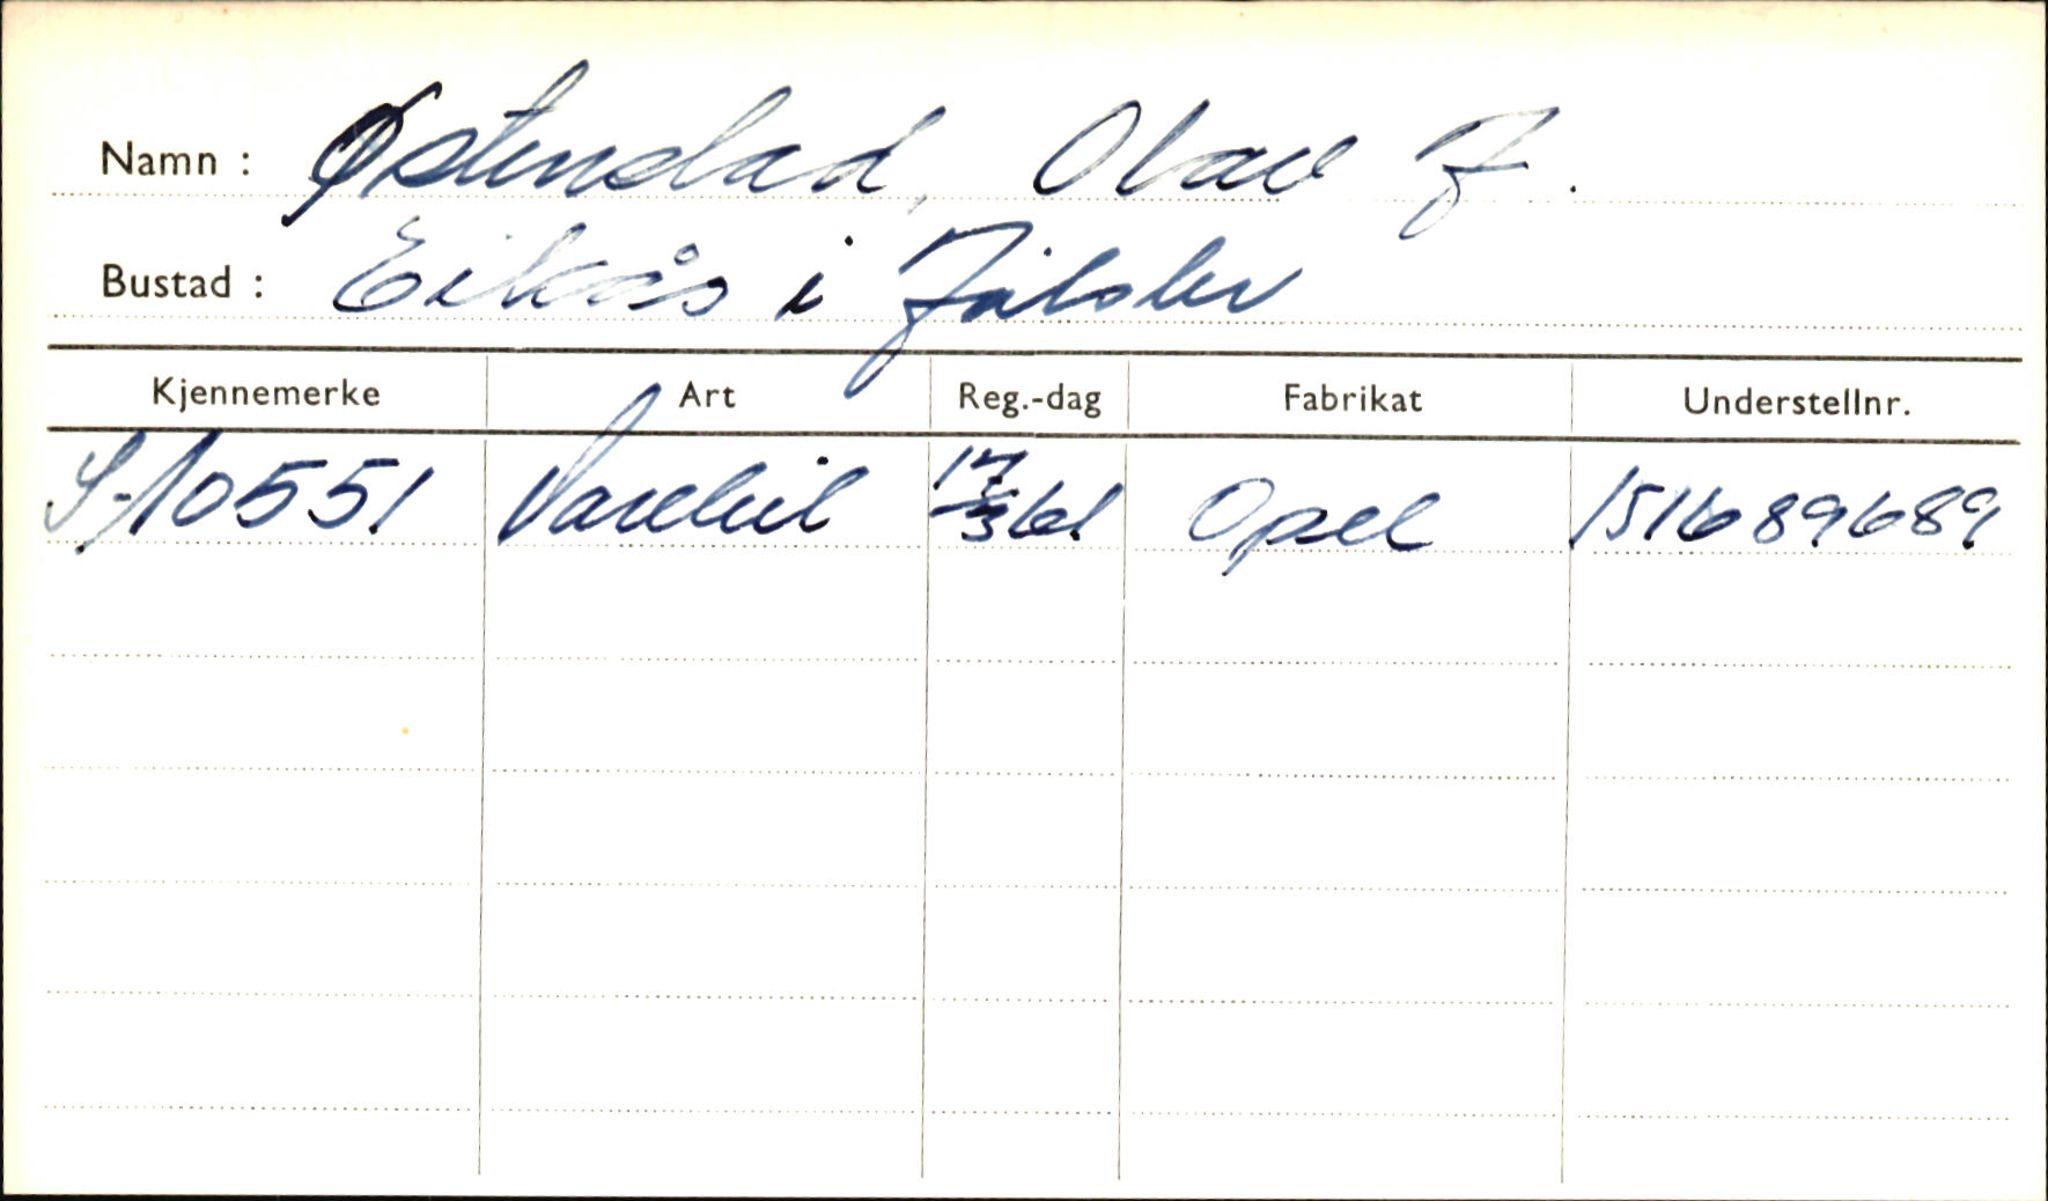 Namn : Østenstad, Olav J.
Bustad : Eikås i Jølster
Kjennemerke Art Reg.-dag Fabrikat Understellnr.
S-10551 Varebil 17/3 61 Opel 1516 89689